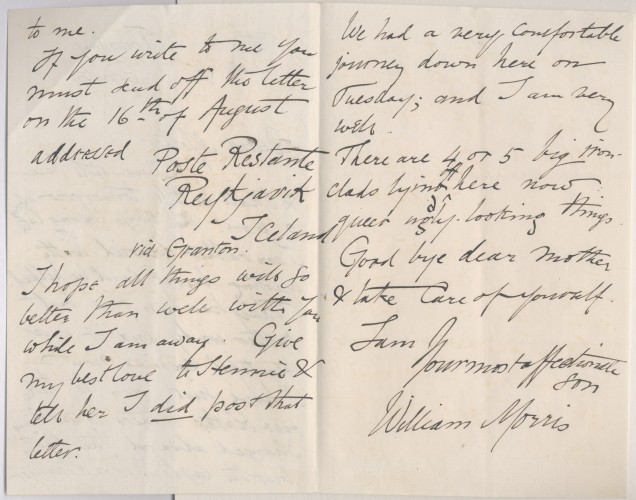 to me.
If you write to me you
must send off the letter
on the 16th of August
addressed Poste Restante
Reykjavik
Iceland
via Granton.
I hope all things will go
better than well with you
while I am away. Give
my best love to Hennie &
tell her I did post that
letter.
We had a very comfortable
journey down here on
Tuesday; and I am very
well.
There are 4 or 5 big iron-
clads lying off here now
queer ugly-looking things.
Good bye dear mother
& take care of yourself.
I am
Your most affectionate
son
William Morris